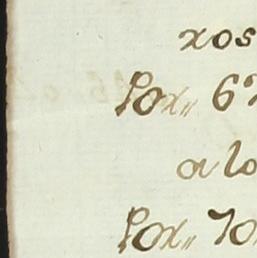 xos
Pox,, 6
a lo
Pox,, 70